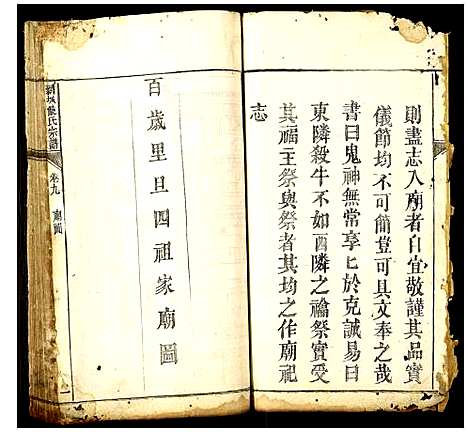 則盡志入廟者自宜敬謹其品實
儀節均不可簡豈可具文奉之哉
書曰鬼神無常享匕於克誠易曰
東隣殺牛不如酉隣之禴祭實受
其福主祭與祭者其均之作廟祀
志
百歲里旦四祖家廟圖
氏宗譜
卷九
廟圖
一